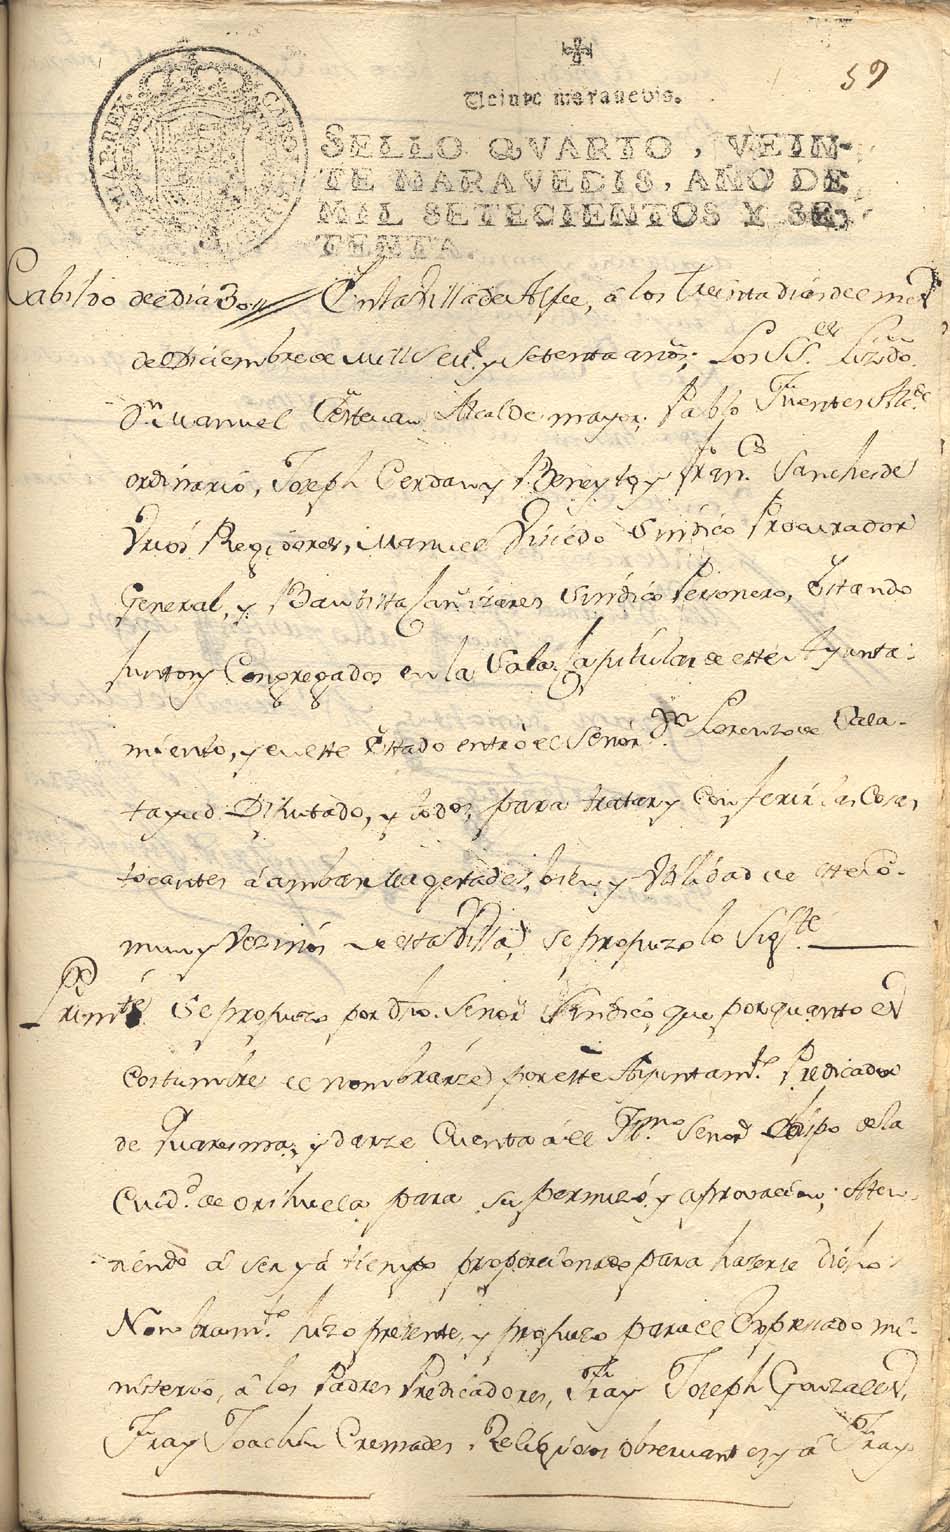 59
Veinte maravedis.
SELLO QVARTO, VEIN-
TE MARAVEDIS, AÑO DE
MIL SETECIENTOS Y SE-
TENTA.
Cabildo de el dia 30 // En la Villa de Aspe, â los Treinta dias de el mes
de Diciembre de Mill Set.s y setenta años; Los SS.es Lizdo.
Dn. Manuel Estevan Alcalde mayor; Pablo Fuentes Alc.de
ordinario, Joseph Cerdan y Beneyto, y Fran.co Sanches de
Regidores, Manuel Sindico Procurador
General, y Bautista Cañizares Sindico Personero, Estando
Juntos y Congregados en la Sala Capitular de este Ayunta-
miento, y en este Estado entrô el Señor Dn. Lorenzo de Cala-
tayud Diputado, y todos, para tratar y Conferir las Cosas
tocantes â ambas Magestades, bien y Utilidad de este Co-
mun y Vezinos de esta Villa, se propuzo lo Sig.te
Primte. Se propuzo por dho. Señor Sindico, que por quanto es
costumbre el nombrarze por este Ayuntam.to Predicador
de Quaresma, y darze Cuenta â el Ill.mo Señor Obispo de la
Ciud.d de Orihuela para su permizo y aprovacion; Aten-
diendo â ser yá tiempo proporcionado para hazerse dicho
Nombram.to hizo prezente, y propuzo para el Expresado mi-
nisterio, â los Padres Predicadores, Fray Joseph Gonzales,
Fray Joachin Cremades, Religiosos observantes, y â Fray